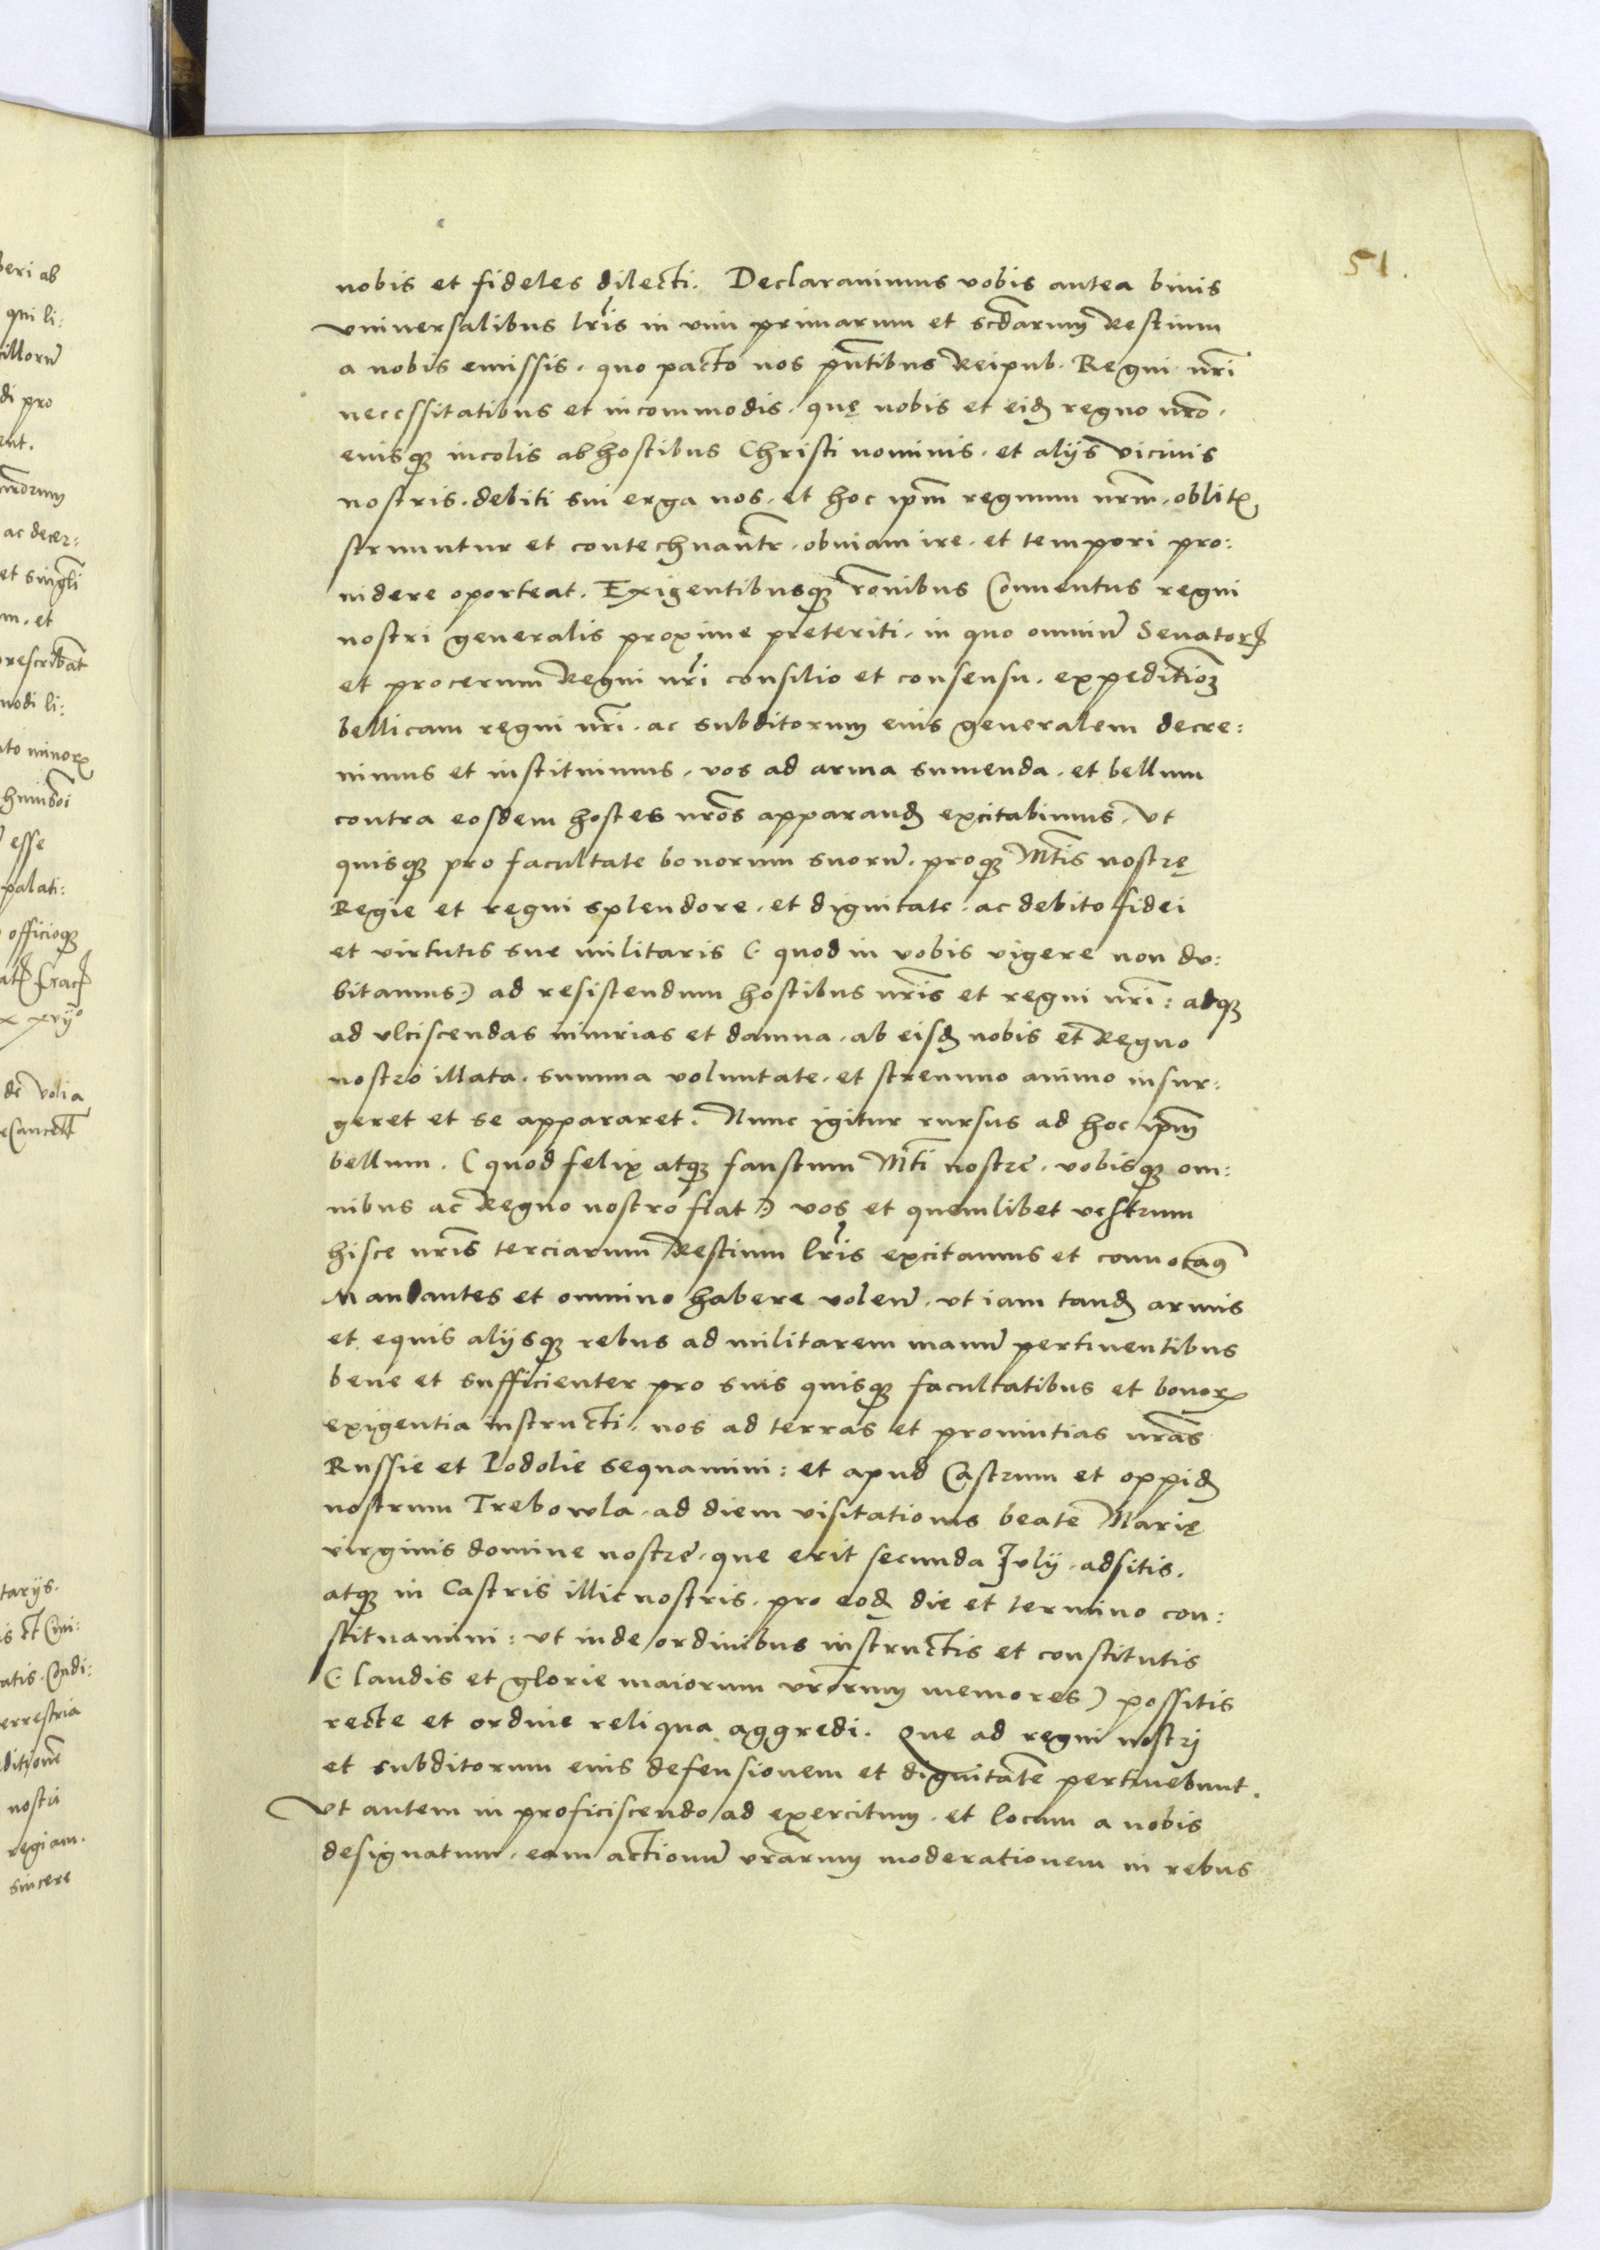 51.
nobis et fideles dilecti. Declarauimus vobis antea binis
vniuersalibus lris in vim primarum et scdarum Restium
a nobis emissis, quo pacto nos pntibus Reipub. Regni nri
necessitatibus et incommodis, quę nobis et eid regno nro,
eiusq incolis ab hostibus Christi nominis, et alijs vicinis
nostris, debiti sui erga nos, et hoc ipm regnum nrm, oblitꝭ
struuntur et contechnantr, obuiam ire, et tempori pro:
uidere oporteat. Exigentibusq ronibus Conuentus regni
nostri generalis proxime preteriti, in quo omniu Senatorꝭ
et procerum Regni nri consilio et consensu, expeditioꝫ
bellicam regni nri, ac subditorum eius generalem decre:
uimus et instituimus, vos ad arma sumenda, et bellum
contra eosdem hostes nros apparand excitabimus, vt
quisq pro facultate bonorum suoru, proq Mtis nostrę
Regie et regni splendore, et dignitate, ac debito fidei
et virtutis sue militaris (: quod in vobis vigere non du:
bitamus:) ad resistendum hostibus nris et regni nri: atq
ad vlciscendas iniurias et damna, ab eisd nobis et Regno
nostro illata, summa voluntate, et strenuo animo insur:
geret et se appararet. Nunc igitur rursus ad hoc ipm
bellum, (quod felix atq faustum Mti nostre, vobisq om:
nibus ac Regno nostro fiat:) vos et quemlibet vestrum
hisce nris terciarum Restium lris excitamus et conuocamꝰ
Mandantes et omnino habere volen, vt iam tand armis
et equis alijsq rebus ad militarem manu pertinentibus
bene et sufficienter pro suis quisq facultatibus et bonorꝝ
exigentia instructi, nos ad terras et prouintias nras
Russie et Podolie sequamini: et apud Castrum et oppid
nostrum Trebowla, ad diem visitationis beate Marię
virginis domine nostre, que erit secunda July, adsitis,
atq in Castris illic nostris, pro eod die et termino con:
stituamini: vt inde ordinibus instructis et constitutis
(: laudis et glorie maiorum vrorum memores) possitis
recte et ordine reliqua aggredi. Que ad regni nostrj
et subditorum eius defensionem et dignitate pertinebunt.
Vt autem in proficiscendo ad exercitum, et locum a nobis
designatum, eam actionu vrarum moderationem in rebus